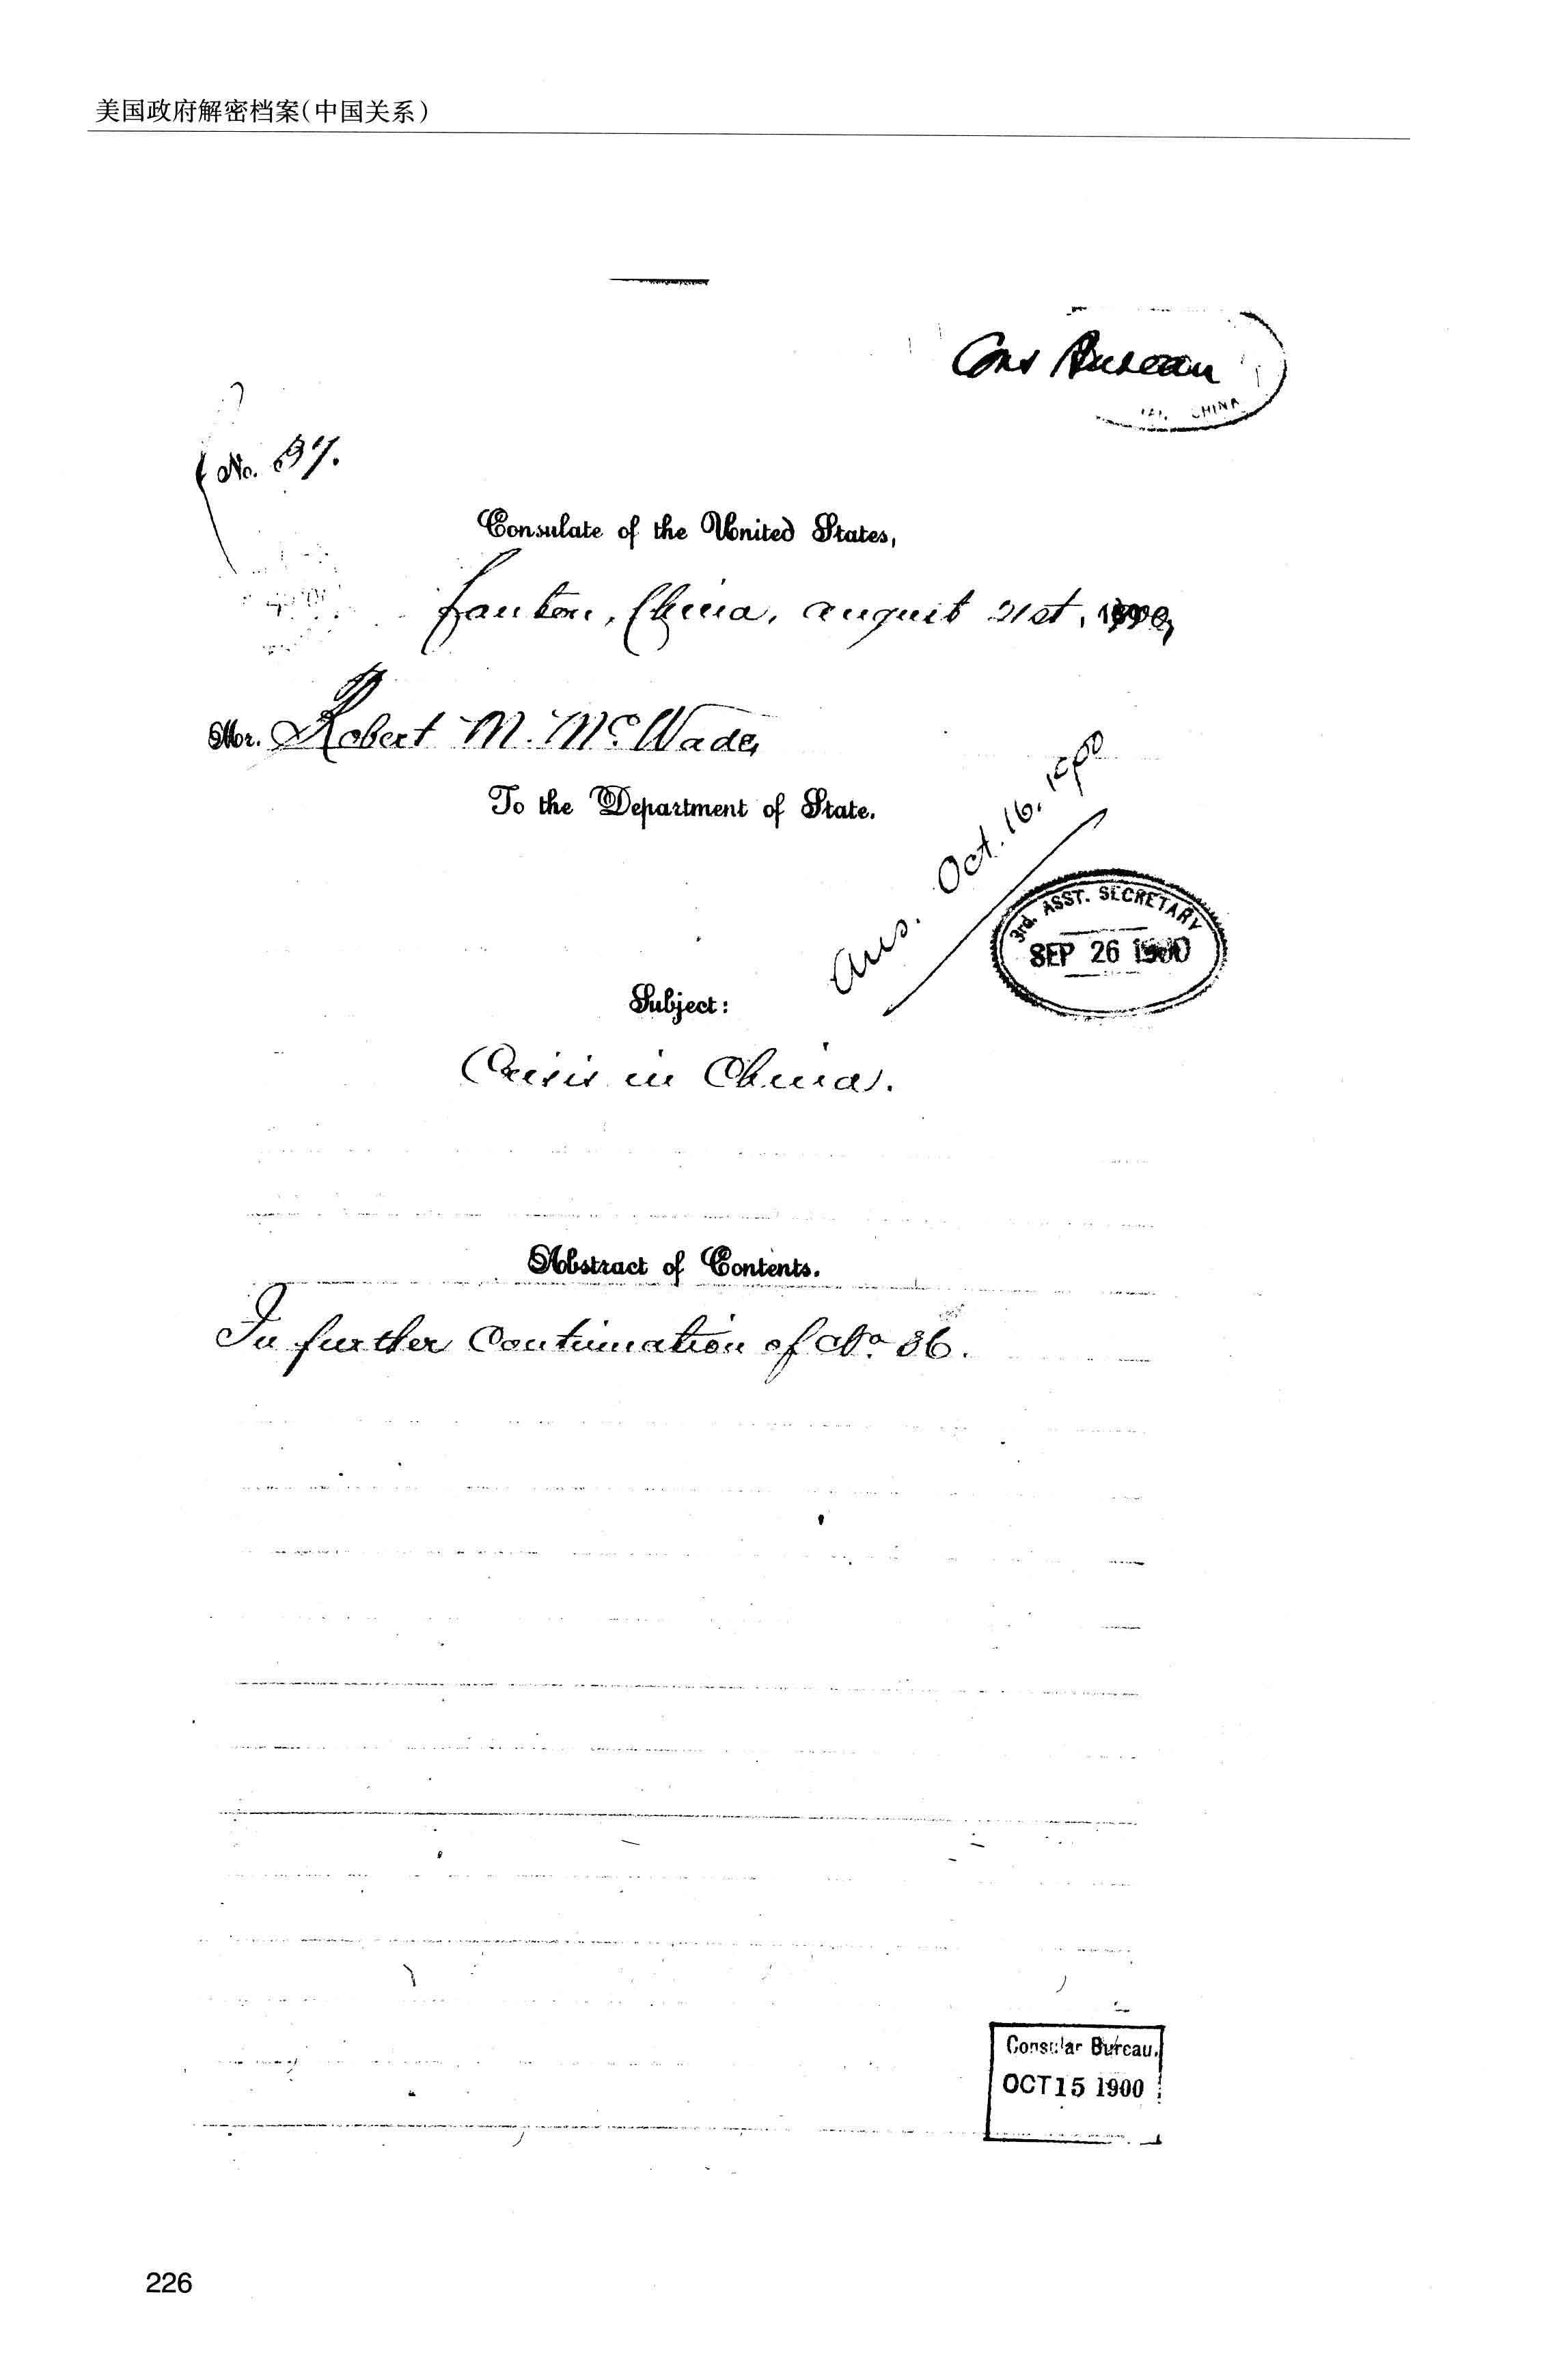 美国政府解密档案(中国关系)
Cons Bureau
CHINA
No. 37.
Consulate of the United States,
Canton, China, August 21st, 1900,
Mr. Robert M. McWade,
To the Department of State.
Ans. Oct. 16, 1900
3rd. ASST. SECRETARY
SEP 26 1900
Subject:
Crisis in China.
Abstract of Contents.
In further Continuation of No. 36.
Consular Bureau.
OCT 15 1900
226